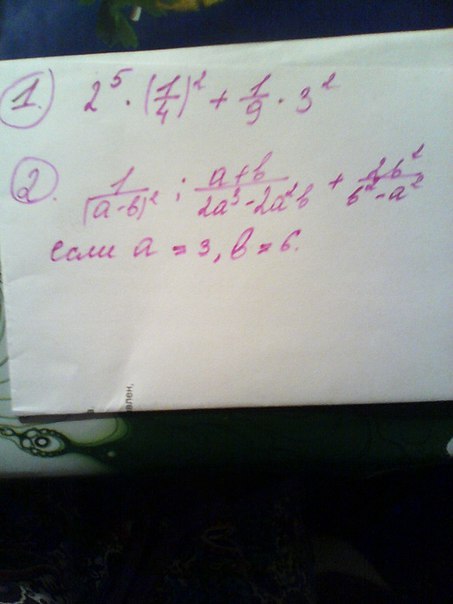 1. 2⁵ · (1/4)² + 1/9 · 3²
2. 1/(a-b)² : (a+b)/(2a³-2a²b) + 2b²/(b²-a²)
если a = 3, b = 6.
ален,